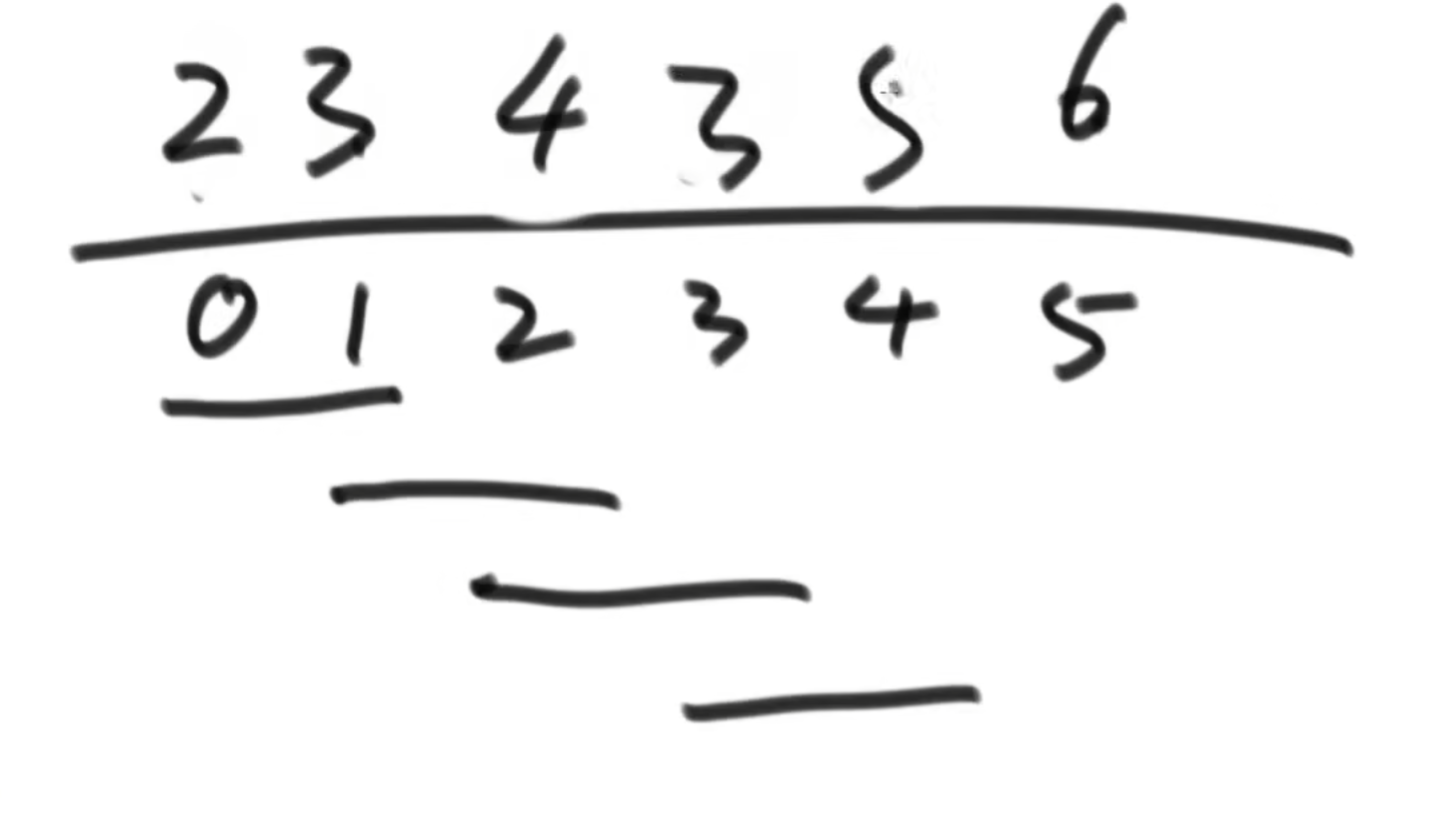 2 3 4 3 5 6
0 1 2 3 4 5